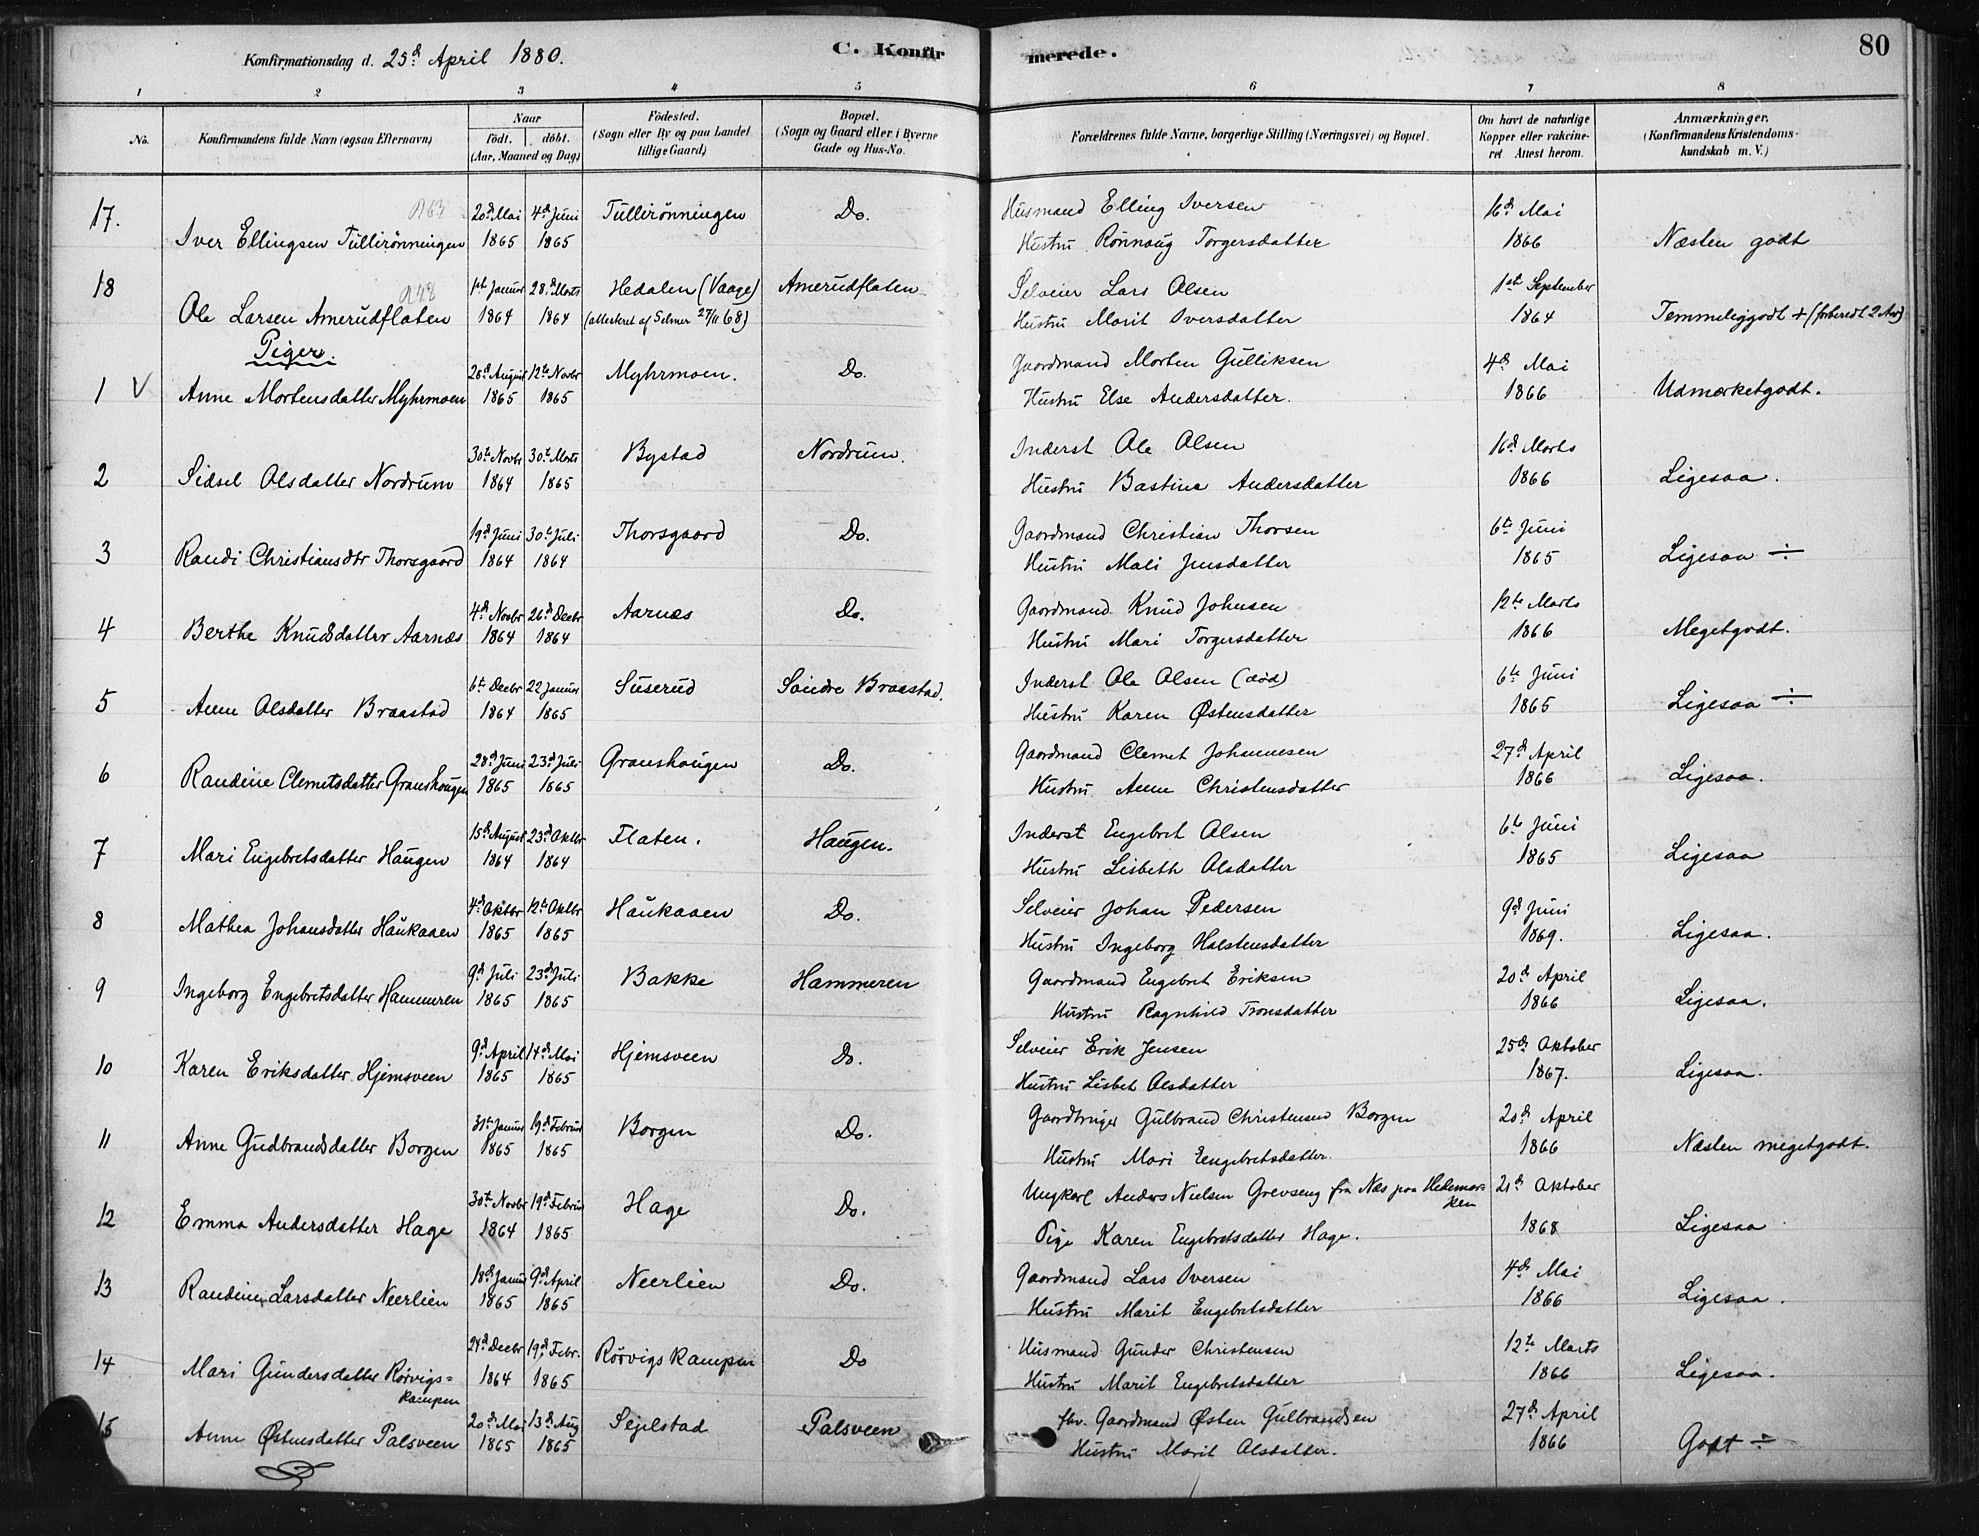 Konfirmationsdag d. 25d April 1880. C. Konfirmerede. 80
1 2 3 4 5 6 7 8
No. Konfirmandens fulde Navn (ogsaa Efternavn) Naar födt. döbt. (Aar, Maaned og Dag) Födested. (Sogn eller By og paa Landet tillige Gaard) Bopæl. (Sogn og Gaard eller i Byerne Gade og Hus-No. Forældrenes fulde Navne, borgerlige Stilling (Næringsvei) og Bopæl. Om havt de naturlige Kopper eller vakcineret Attest herom. Anmærkninger. (Konfirmandens Kristendomskundskab m. V.)
17. 20d Mai 4d Juni Tullirönningen Do. Husmand Elling Iversen 16d Mai
Iver Ellingsen Tullirönningen 1865 1865 Hustru Rönnaug Torgersdatter 1866 Næsten godt
18 1ste Januar 28d Marts Hedalen (Vaage) Amerudflaten Selveier Lars Olsen 1ste September
Ole Larsen Amerudflaten 1864 1864 (attesteret af Selmer 27/11 68) Hustru Marit Iversdatter 1864 Temmeliggodt + (forberedt 2 Aar)
Piger.
1 V 28d August 12te Novbr Myhrmoen. Do. Gaardmand Morten Gulliksen 4d Mai
Anne Mortensdatter Myhrmoen 1865 1865 Hustru Else Andersdatter. 1866 Udmærketgodt.
2 30te Novbr 30te Marts Bystad Nordrum. Inderst Ole Olsen 16d Marts
Sidsel Olsdatter Nordrum 1864 1865 Hustru Bastine Andersdatter 1866 Ligesaa.
3 19d Juni 30te Juli Thorsgaard Do. Gaardmand Christian Thorsen 6te Juni
Randi Christiansdtr Thorsgaard 1864 1864 Hustru Mali Jensdatter 1865 Ligesaa ÷
4 4d Novbr 26d Decbr Aarnæs Do. Gaardmand Knud Johnsen 12te Marts
Berthe Knudsdatter Aarnæs 1864 1864 Hustru Mari Torgersdatter 1866 Megetgodt.
5 6te Decbr 22 Januar Suserud Söndre Braastad. Inderst Ole Olsen (död) 6te Juni
Anne Olsdatter Braastad 1864 1865 Hustru Karen Østensdatter 1865 Ligesaa ÷
6 28d Juni 23d Juli Granshaugen Do. Gaardmand Clemet Johannesen 27d April
Randine Clemetsdatter Granshaugen 1865 1865 Hustru Anne Christensdatter 1866 Ligesaa.
7 15d August 23d Oktbr Flaten. Haugen. Inderst Engebret Olsen 6te Juni
Mari Engebretsdatter Haugen 1864 1864 Hustru Lisbeth Olsdatter 1865 Ligesaa
8 4d Oktbr 12te Oktbr Haukaaen Do. Selveier Johan Pedersen 9d Juni
Mathea Johansdatter Haukaaen 1865 1865 Hustru Ingeborg Halstensdatter 1869. Ligesaa.
9 9d Juli 23d Juli Bakke Hammeren Gaardmand Engebret Eriksen 20d April
Ingeborg Engebretsdatter Hammeren 1865 1865 Hustru Ragnhild Tronsdatter 1866 Ligesaa.
10 9d April 14d Mai Hjemsveen Do. Selveier Erik Jensen 25d Oktober
Karen Eriksdatter Hjemsveen 1865 1865 Hustru Lisbet Olsdatter 1867. Ligesaa.
11 31te Januar 19d Februar Borgen Do. Gaardbruger Gulbrand Christensen Borgen 20d April
Anne Gudbrandsdatter Borgen 1865 1865 Hustru Mari Eengebretsdatter. 1866 Næsten megetgodt.
12 30te Novbr 19d Februar Hage Do. Ungkarl Anders Nielsen Grevseng fra Næs paa Hedemarken 21d Oktober
Emma Andersdatter Hage 1864 1865 Pige Karen Engebretsdatter Hage. 1868 Ligesaa
13 18d Januar 9d April Neerlien Do. Gaardmand Lars Iversen 4d Mai
Randine Larsdatter Neerlien 1865 1865 Hustru Marit Engebretsdatter 1866 Ligesaa.
14 24d Decbr 19d Febr. Rörvigskampen Do Husmand Gunder Christensen 12te Marts
Mari Gundersdatter Rörvigs= 1864 1865 Hustru Marit Engebretsdatter 1866 Ligesaa.
kampen
15 20d Mai 13d Aug Sejelstad Palsveen fhv. Gaardmand Østen Gulbrandsen 27d April
Anne Østensdatter Palsveen 1865 1865 Hustru Marit Olsdatter. 1866 Godt ÷